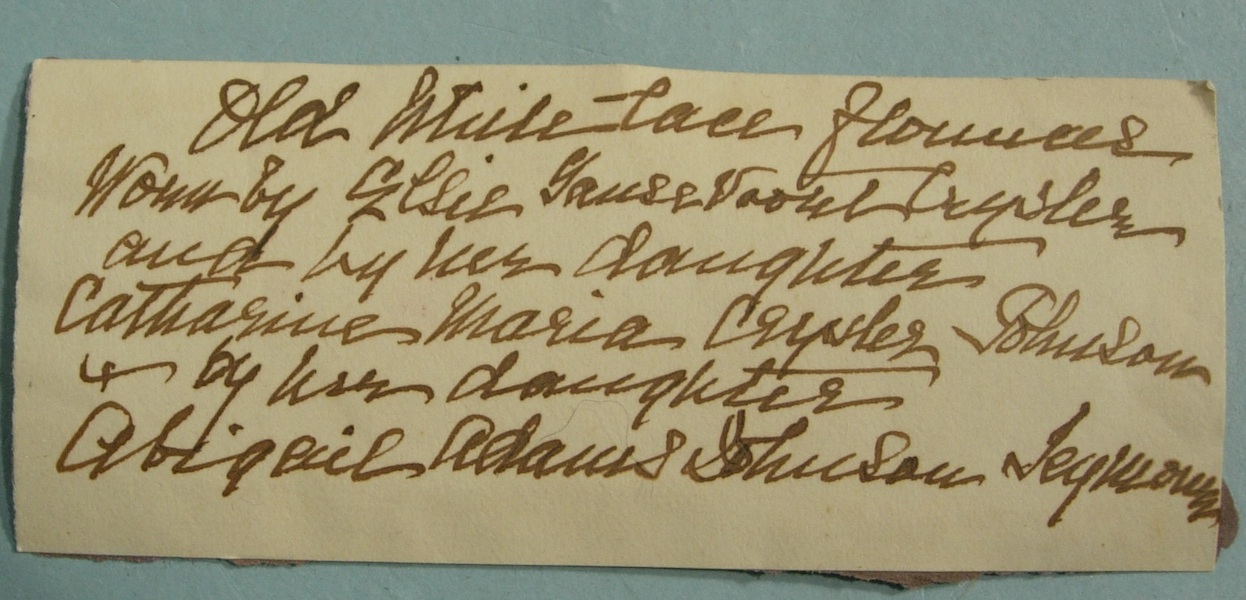 Old White Lace flounces
Worn by Elsie Gansevoort Crysler
and by her daughter
Catharine Maria Crysler Johnson
& by her daughter
Abigail Adams Johnson Seymour